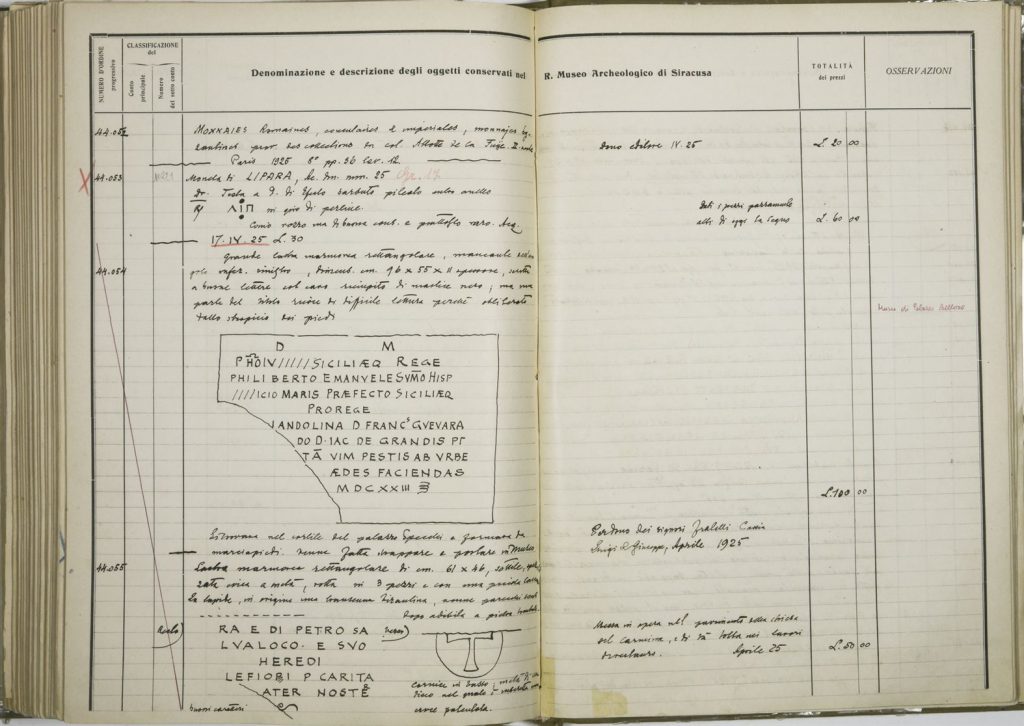 NUMERO D'ORDINE
progressivo
CLASSIFICAZIONE
del
Conto
principale
Numero
del sotto conto
Denominazione e descrizione degli oggetti conservati nel R. Museo Archeologico di Siracusa
TOTALITÀ
dei prezzi
OSSERVAZIONI
44.052
Romaines, consulaires & imperiales, monnaies
prov. des collections du col. Allotte de la Fuÿe
Paris 1925 8° pp. 36 tav. 12
Dono editore IV. 25
L. 20 00
44.053
Moneta di LIPARA, Ae. dm. mm. 25 Gr. 17
Testa a d. di Efesto barbuto pileato entro anello
ΛΙΠ in giro di perline.
Conio rozzo ma di buona cons. e piuttosto raro. Acq.
17. IV. 25 L. 30
Dati i prezzi
L. 60 00
44.054
Grande lastra marmorea rettangolare, mancante
infer. sinistro, dimens. cm. 96 x 55 x 11 spessore,
a buone lettere col cavo riempito di mastice nero; ma una
parte del titolo riesce di difficile lettura perchè obliterato
dallo stropiccio dei piedi
Museo di Palazzo Bellomo
D M
SICILIÆQ REGE
PHILIBERTO EMANVELE SVM̄O HISP
////ICIO MARIS PRÆFECTO SICILIÆQ
PROREGE
ANDOLINA D FRANCˢ GVEVARA
DO D·IAC DE GRANDIS PT
TĀ VIM PESTIS AB VRBE
ÆDES FACIENDAS
MDCXXIII
L. 100 00
nel cortile del palazzo Specchi e formava da
marciapiedi. Venne fatta strappare e portare in Museo
Per dono dei signori Fratelli
Luigi e Giuseppe, Aprile 1925
44.055
Lastra marmorea rettangolare di cm. 61 x 46, sottile,
circa a metà, rotta in 3 pezzi e con una piccola
La lapide, in origine una transenna bizantina, venne
dopo adibita a pietra
Recto)
RA E DI PETRO SA
LVALOCO· E SVO
HEREDI
LEFIORI P CARITA
ATER NOSTE
buoni caratteri
Verso)
Cornice in basso; metà di un
disco nel quale è inserita una
croce patculata.
Messa in opera nel pavimento della chiesa
del Carmine, e di là tolta nei lavori
Aprile 25
L. 50 00